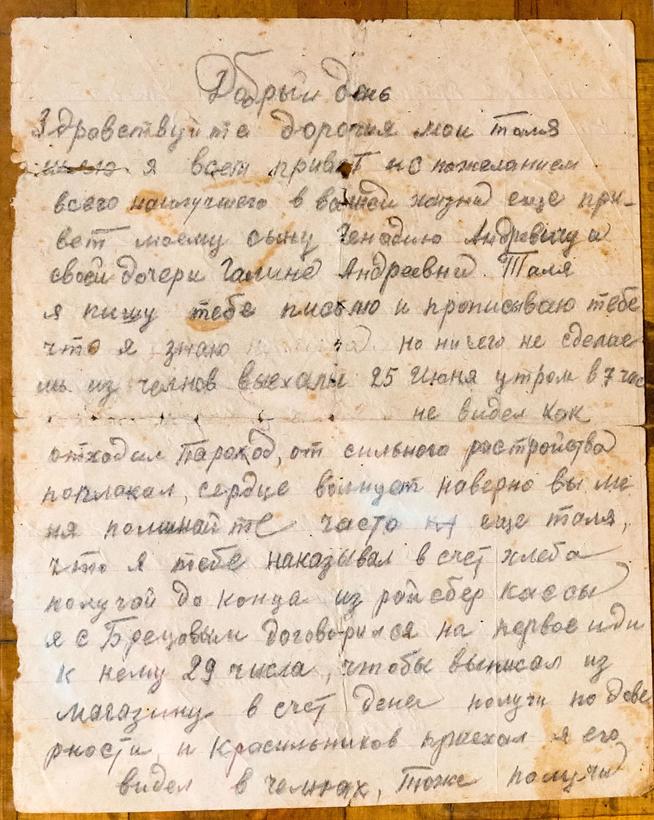 Добрый день
Здравствуйте дорогия мои Таля
я всем привет и с пожеланием
всего наилучшего в вашей жизни еще при-
вет моему сыну Генадию Андревичу и
своей дочери Галине Андреевне. Таля
я пишу тебе письмо и прописываю тебе
что я знаю но ничего не сделае
шь из челнов выехали 25 Июня утром в 7 час
не видел как
отходил Пароход, от сильного растройства
поплакал, сердце волнует наверно вы ме
ня поминайте часто еще таля,
что я тебе наказывал в счет хлеба
получай до конца из райсбер кассы
я с Брецовым договорился на первое иди
к нему 29 числа, чтобы выписал из
магазину в счет денег получи по дове
рности, и Красильников приехал я его
видел в челнах, тоже получи